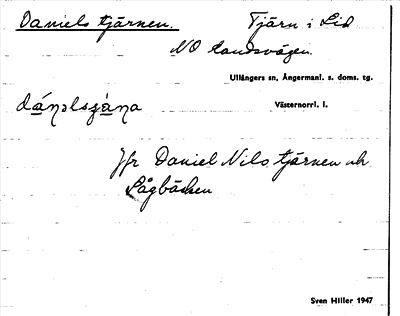 Danielstjärnen. Tjärn i Lid
NO landsvägen.
Ullångers sn, Ångermanl. s. doms. tg.
Västernorrl. l.
Jfr Daniel Nilstjärnen och
Sågbäcken
Sven Hiller 1947